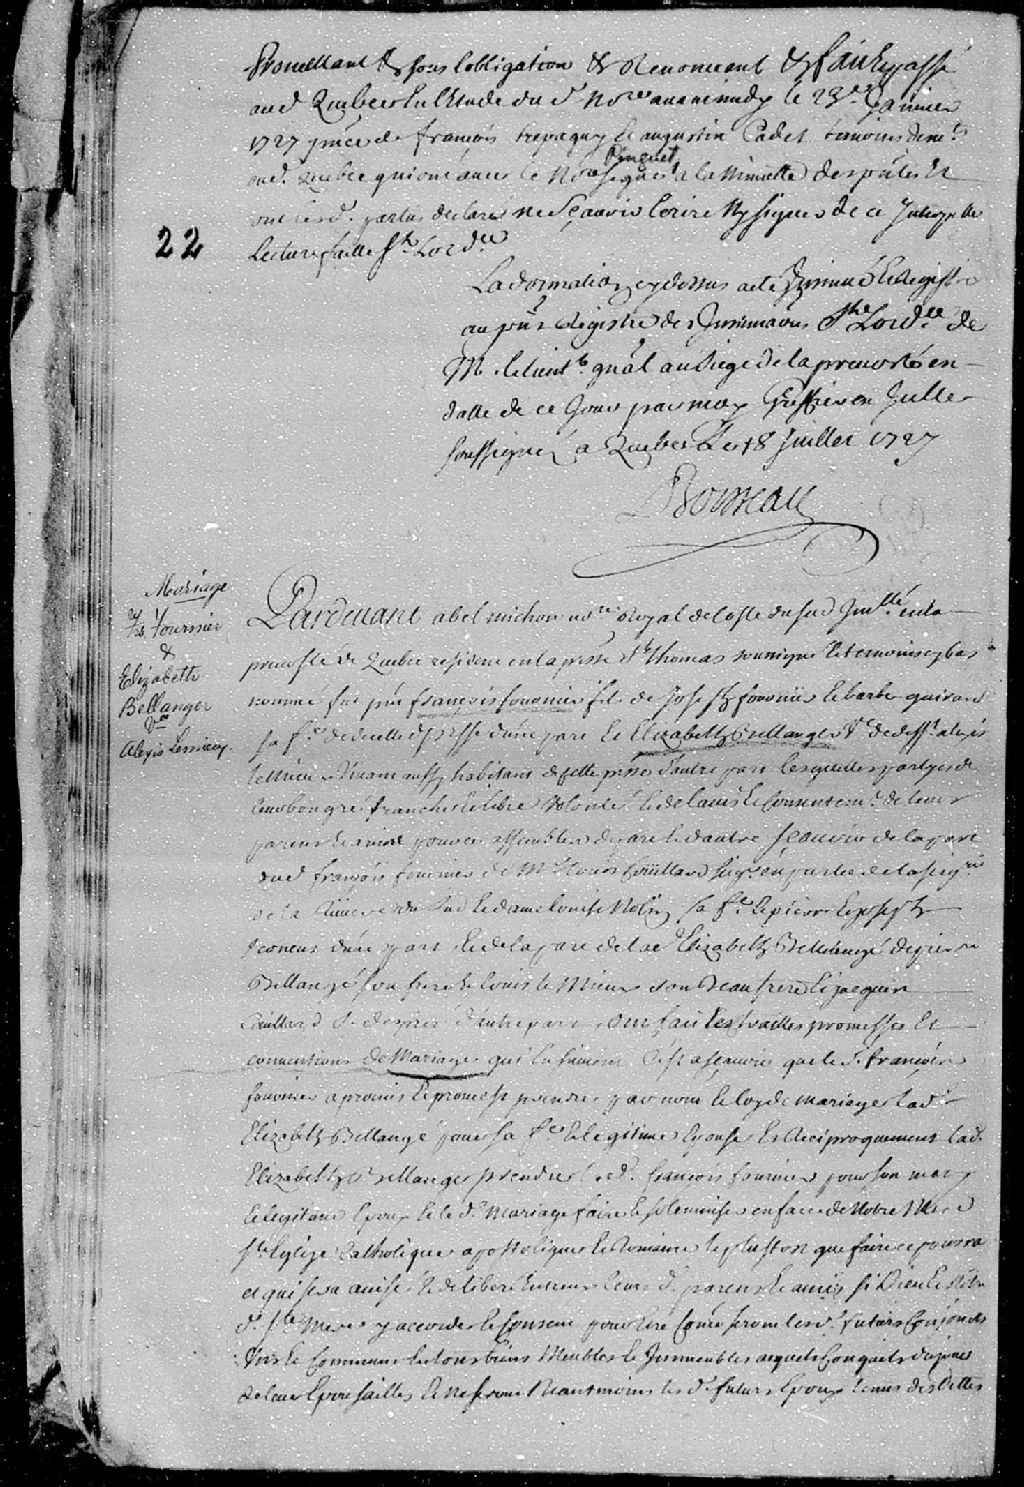 Promettant &c sous lobligation &c Renoncant &c fait & passé
aud Quebec En lEtude dud. Nore avant midy le 23e. Janvier
1727 pñce de françois trepagny & augustin Cadet temoins demts
aud. Quebec qui ont avec le Nore Pinguet signé a la Minutte des pñtes Et
ont lesd. parties declaré ne sçavoir Ecrire Ny signer de ce Interpellé
22
Lecture faitte St. Lordce
La donnation cy dessus a eté Insinué & Registré
au pñt Registre des Insinuaons St. Lordce de
Mr. le lieutt. gnãl au siege de la prevosté en
datte de ce Jour par moy Greffier en Icelle
soussigné a Quebec Le 18 Juillet 1727
Boisseau
Mariage
frs. fournier
&
Elizabeth
Bellanger
Vve
Alexis Lemieux.
Pardevant abel michon nore. Royal de la Coste du sud Jnsttlé en la
prevosté de Quebec resident en la pñsse St. thomas soussigné & temoins cy bas
nommé fut pñt françois fournier fils de Joseph fournier & barbe guirard
sa fe. de delle dpñsse d'une part & Elizabeth Bellanger Ve. de defft. alexis
lemieu vivant aussy habitant de cette pñsse d'autre part lesquelles partyes de
leur bon gré franche & libre volonté & de lavis & Consentemt. de leurs
parens & amis pour ce assemblés de part & dautre sçavoir de la part
dud françois fournier de Mr Louis Coüillard seigr. en partie de la seigrie
de la Riviere du sud & dame Louise Nolin sa fe. & pierre & joseph
d'une part & de la part de lad. Elizabeth Bellangé de pierre
Bellangé son frere & Louis le Mieux son beau frere & jacques
Coüillard S. despres d'autre part ont fait les traittés promesses Et
conventions de Mariage qui En suivent C'est a sçavoir que led. françois
fournier a promis & promest prendre par nom & loy de mariage lad.
Elizabeth Bellangé pour sa fe. & legitime Epouse Et Reciproquement lad.
Elizabeth Bellanger prendre led. françois fournier pour son mary
& legitime Epoux & led. Mariage faire & solemniser en face de Notre Mere
Ste. Eglize Catholique apostolique & Romaine le plustost que faire ce poura
et qui sera avisé & deliberé Entreux leurs d. parens & amis si Dieu & Notre
d. Ste. Mere y accorde & Consent pour Etre Comé seront lesd. futurs Conjoints
Uns & Communs En tous biens Meubles & Immeubles acquets Conquets du jour
de leur Epousailles & Ne seront Neantmoins lesd. futurs Epoux tenus des dettes